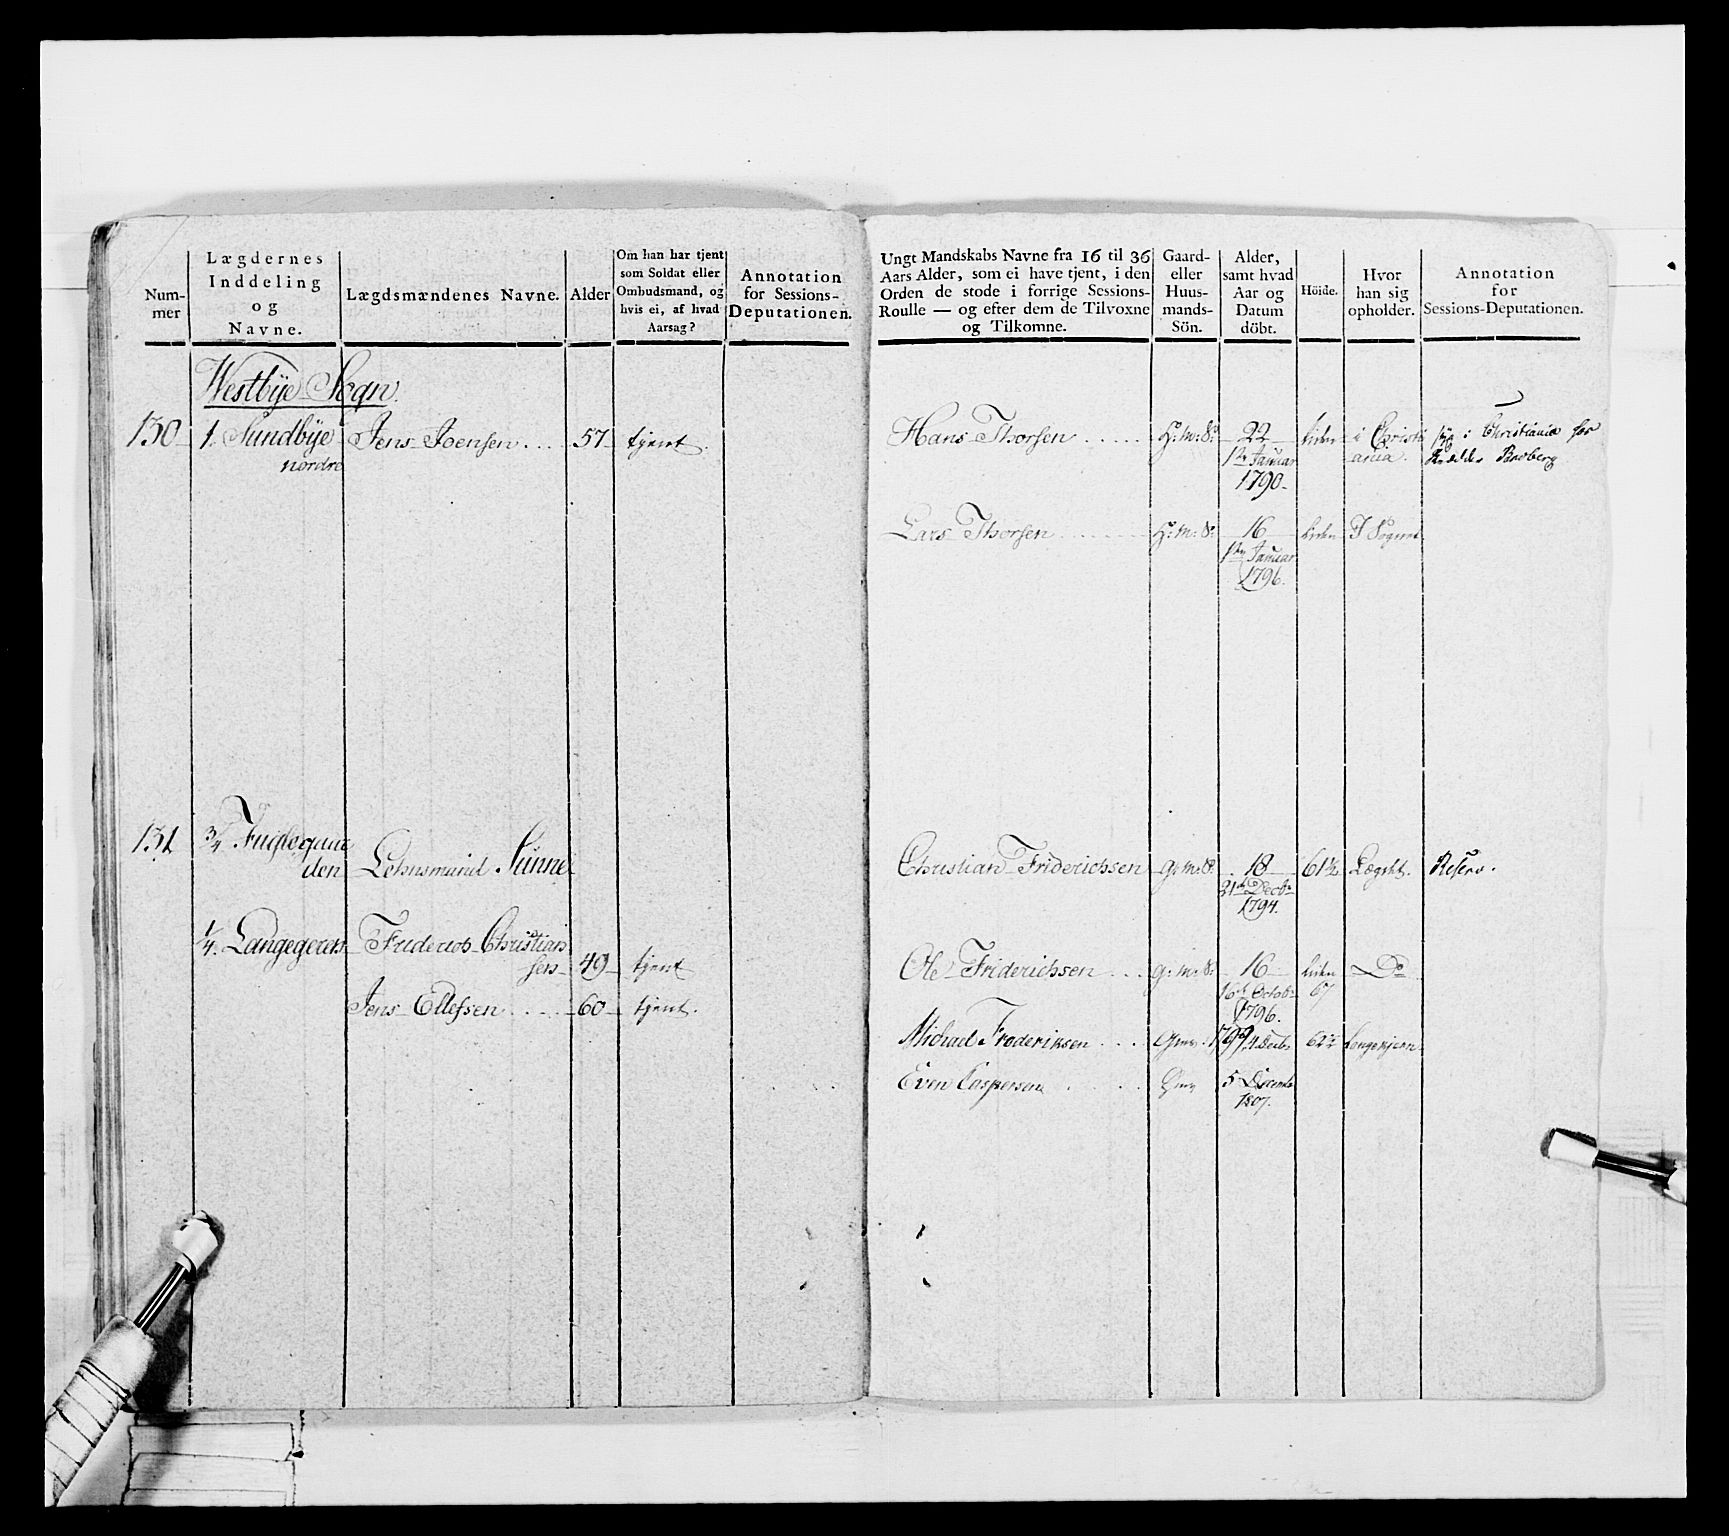 Num-
mer
Lægdernes
Inddeling
og
Navne.
Lægdsmændenes Navne.
Alder
Om han har tjent
som Soldat eller
Ombudsmand, og
hvis ei, af hvad
Aarsag?
Annotation
for Sessions-
Deputationen.
Westbÿe Sogn.
130 1. Sundbÿe Jens Joensen .... 57 tjent.
nordre
131 3/4 Fuglegaar
den Lehnsmand Sunne
1/4. Langegeren Friderich Christian
sen 49 tjent
Jens Ellefsen .... 60 tjent.
Ungt Mandskabs Navne fra 16 til 36
Aars Alder, som ei have tjent, i den
Orden de stode i forrige Sessions-
Roulle — og efter dem de Tilvoxne
og Tilkomne.
Gaard-
eller
Huus-
mands-
Sön.
Alder,
samt hvad
Aar og
Datum
döbt.
Höide.
Hvor
han sig
opholder.
Annotation
for
Sessions-Deputationen.
Hans Thorsen ..... H: M: S: 22 liden i Christi syg i Christiania hos
1ste Januar ania. Broberg
1790.
Lars Thorsen ...... H: M: S: 16 liden I Sognet
1ste Januar
1796.
Christian Friderichsen G: M: S: 18 61½ Lægdet. Reserv.
21de Decbr
1794.
Ole Friderichsen ... G: M: S: 16 liden Do
16de Octobr 67
1796.
Michael Frederiksen .... Gms. 1799 4 Decbr 62½
Even Caspersen .... Gms 5 Decembr
1807.